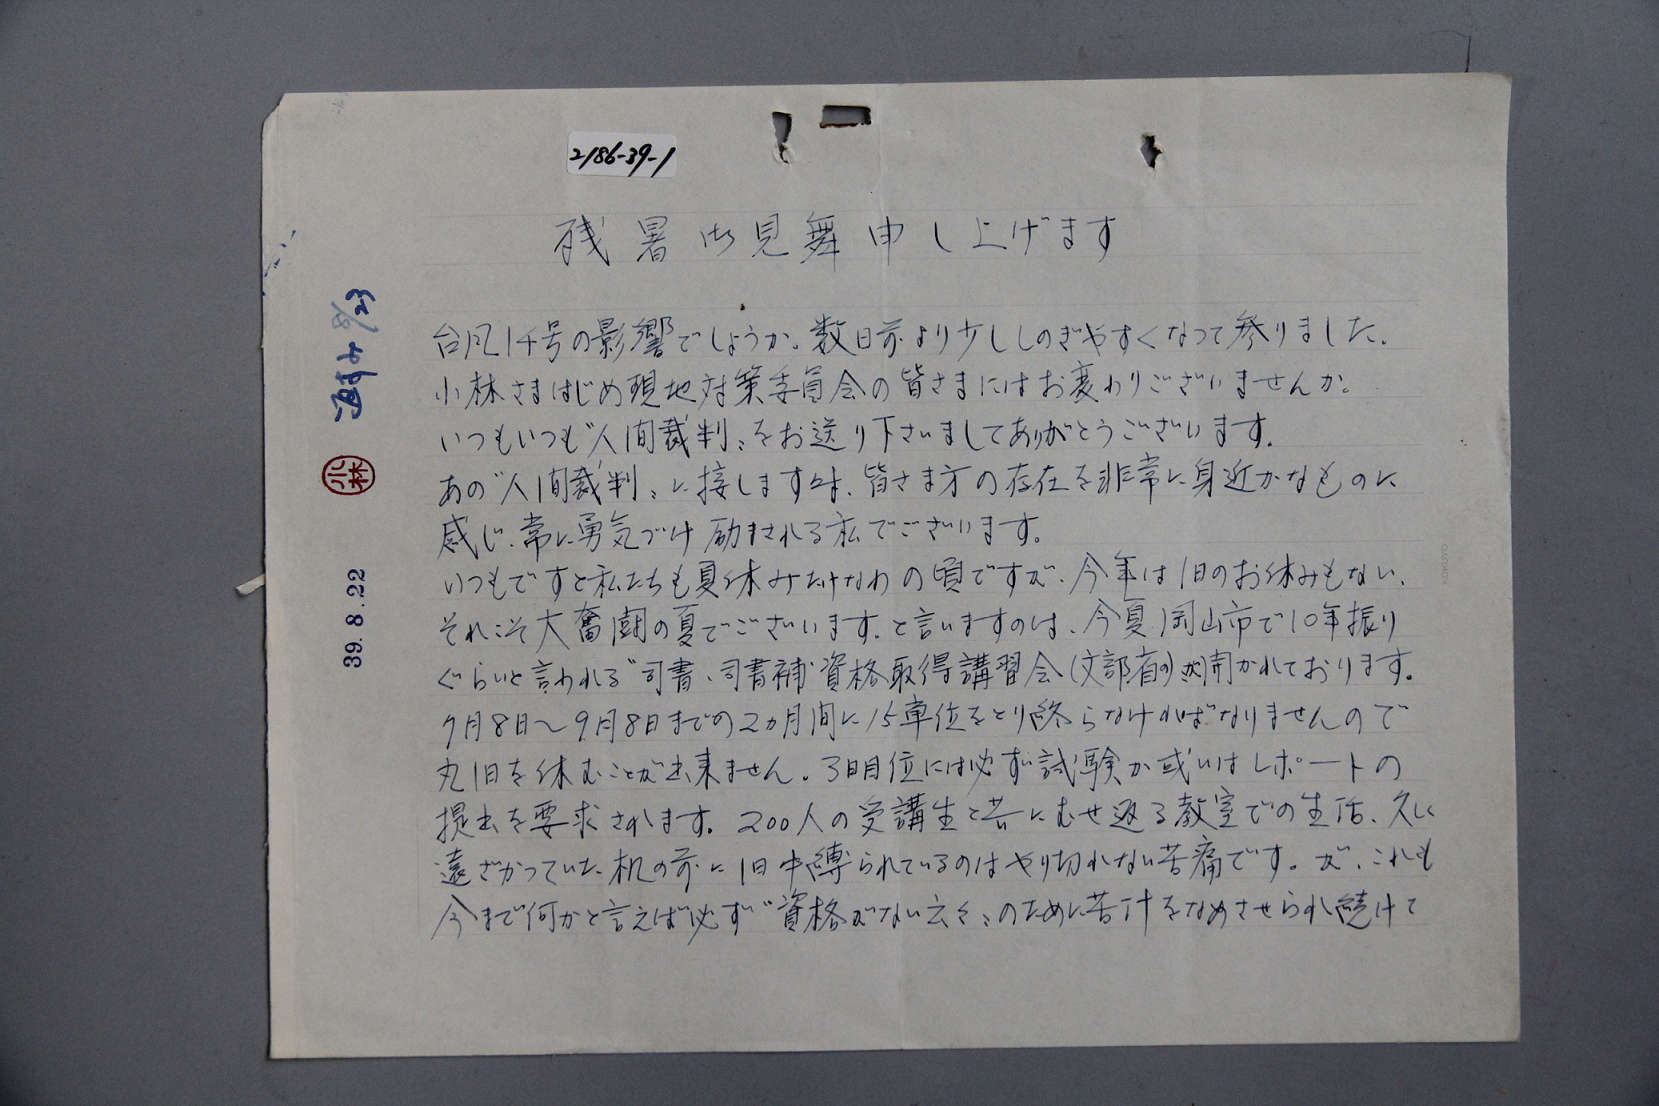 2186-39-1
残暑御見舞申し上げます
台風14号の影響でしょうか。数日前より少ししのぎやすくなって参りました。
小林さまはじめ現地対策委員会の皆さまにはお変わりございませんか。
いつもいつも〝人間裁判〟をお送り下さいましてありがとうございます。
あの〝人間裁判〟に接しますれば、皆さま方の存在を非常に身近かなものに
感じ、常に勇気づけ励まされる私でございます。
いつもですと私たちも夏休みたけなわの頃ですが、今年は1日のお休みもない、
それこそ大奮闘の夏でございます。と言いますのは、今夏岡山市で10年振り
ぐらいと言われる〝司書、司書補〟資格取得講習会(文部省の)が開かれております。
7月8日〜9月8日までの2ヵ月間に15単位をとり終らなければなりませんので
丸1日を休むことが出来ません。3日目位には必ず試験か或いはレポートの
提出を要求されます。200人の受講生と暑にむせ返る教室での生活、久しく
遠ざかっていた机の前に1日中縛られているのはやり切れない苦痛です。が、これも
今まで何かと言えば必ず〝資格がない云々〟のために苦汁をなめさせられ続けて
8/23
小林
39.8.22
KOKUYO